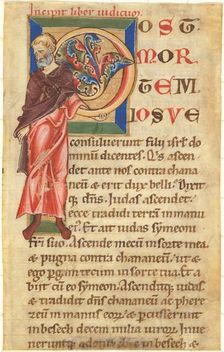 Incipit liber iudicum.
POST
MOR
TEM
IOSVE
consuluerunt filii isrl do
minum dicentes. Q's ascen
det ante nos contra chana
neu & erit dux belli. Dixit
q; dn̄s. Iudas ascendet.
ecce tradidi terrā in manu
eius. Et ait iudas symeoni
fri suo. Ascende mecū in sorte mea
& pugna contra chananeū. ut & 
ego pergā tecum in sorte tua. Et
abiit cū eo symeon. Ascenditq; iudas
& tradidit dn̄s chananeū ac phere
zeū in manus eorū & percusserunt
in besech decem milia virorū. Inve
neruntq; adoni in besech &